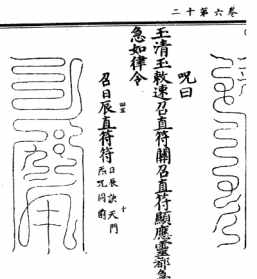 卷六第十二
呪曰
玉清玉敕速召直符關召直符顯應靈都急
急如律令
召日辰直符符
日辰訣天門
炁呪同前
十